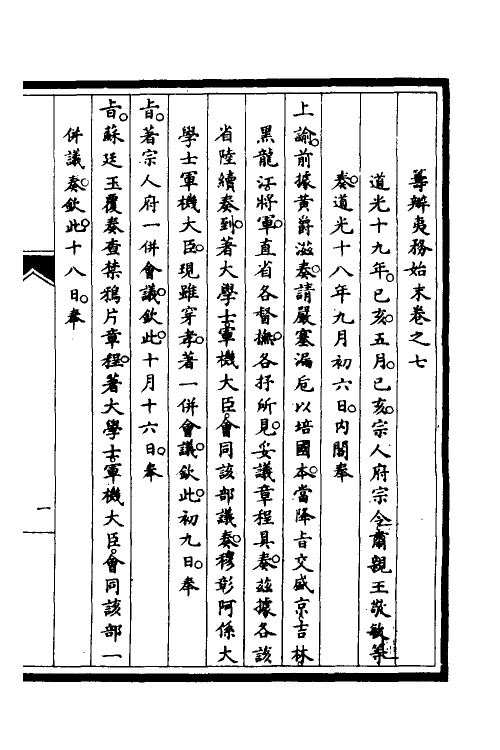 籌辦夷務始末卷之七
道光十九年。己亥。五月。己亥。宗人府宗令肅親王敬敏等
奏。道光十八年九月初六日。內閣奉
上諭。前據黃爵滋奏。請嚴塞漏卮以培國本。當降旨交盛京。吉林
黑龍江將軍。直省各督撫。各抒所見。妥議章程具奏。茲據各該
省陸續奏到。著大學士。軍機大臣。會同該部議奏。穆彰阿係大
學士軍機大臣。現雖穿孝。著一併會議。欽此。初九日。奉
旨。著宗人府一併會議。欽此。十月十六日。奉
旨。蘇廷玉覆奏查禁鴉片章程。著大學士。軍機大臣。會同該部一
併議奏。欽此。十八日。奉
一